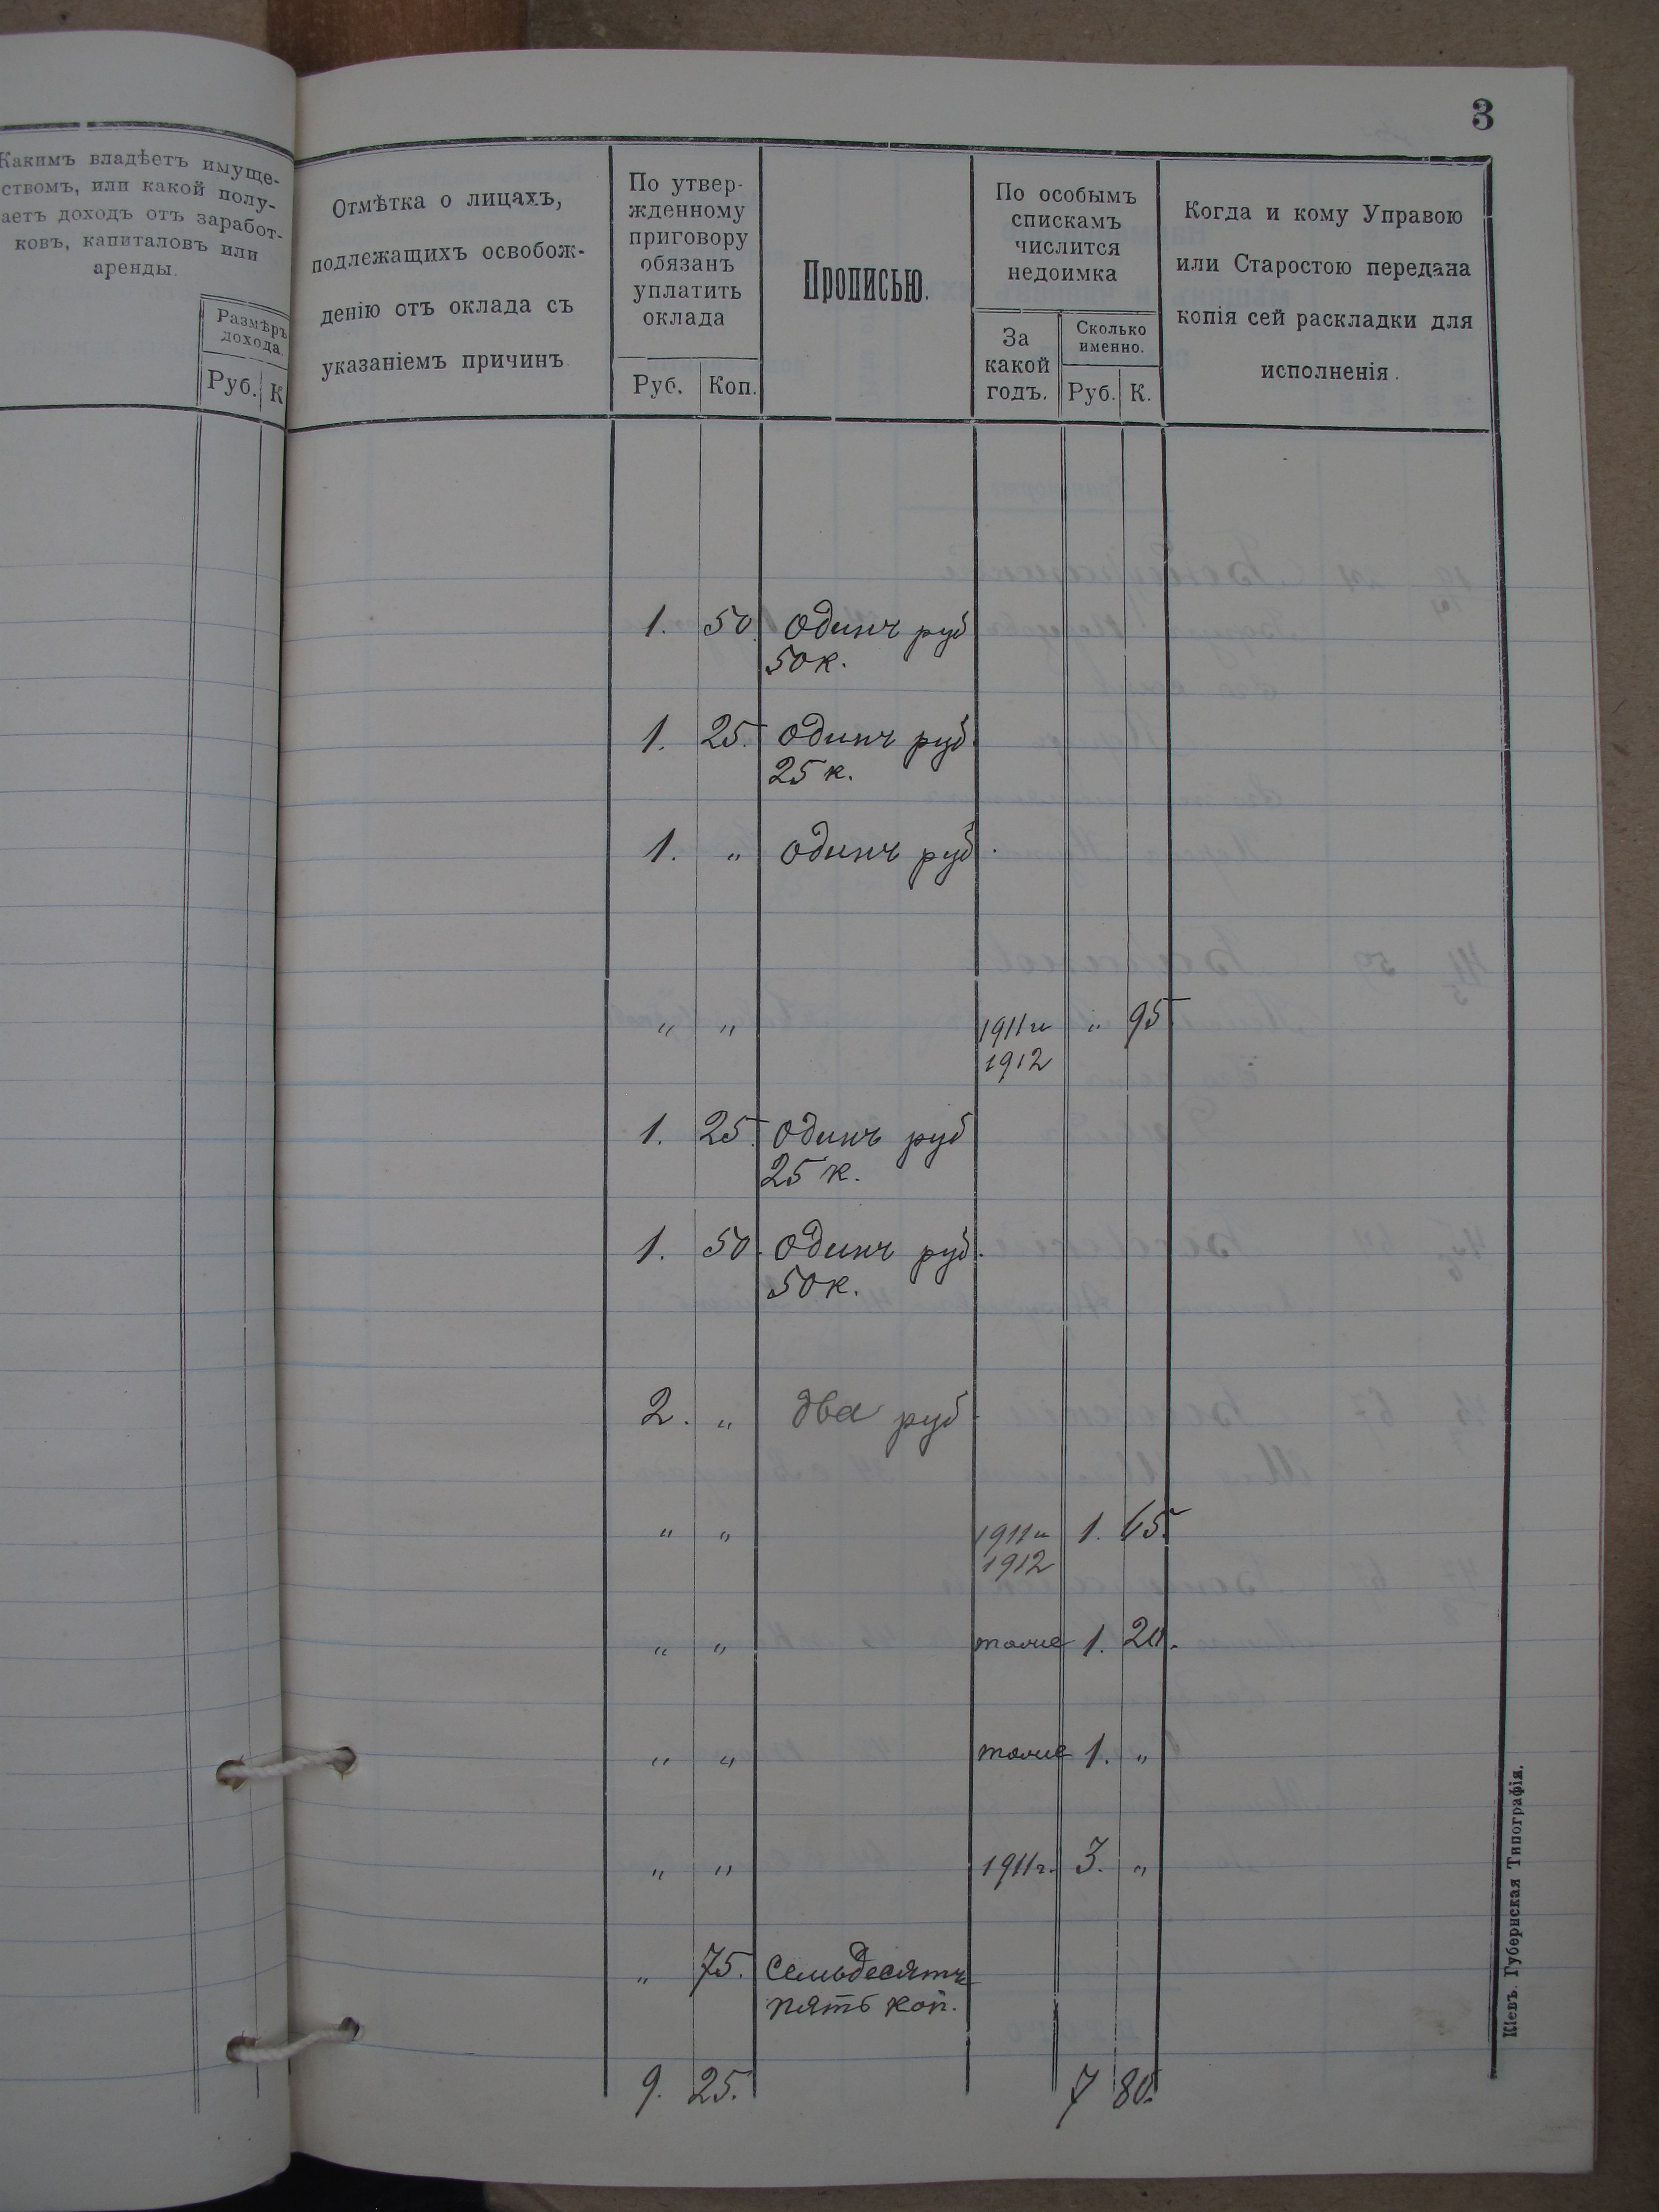 3
Какимъ владѣетъ имуще-
ствомъ, или какой полу-
аетъ доходъ отъ заработ-
ковъ, капиталовъ или
аренды.
Размѣръ
дохода.
Руб. К
Отмѣтка о лицахъ,
подлежащихъ освобож-
денію отъ оклада съ
указаніемъ причинъ
По утвер-
жденному
приговору
обязанъ
уплатить
оклада
Руб. Коп.
Прописью.
По особымъ
спискамъ
числится
недоимка
За
какой
годъ.
Сколько
именно.
Руб. К.
Когда и кому Управою
или Старостою передана
копія сей раскладки для
исполненія.
1. 50. одинъ руб
50 к.
1. 25. одинъ руб.
25 к.
1. „ одинъ руб.
„ „ 1911 и „ 95
1912
1. 25. одинъ руб
25 к.
1. 50. одинъ руб.
50 к.
2. „ два руб.
„ „ 1911 и 1. 65.
1912
„ „ тоже 1. 20.
„ „ тоже 1. „
„ „ 1911 г. 3. „
„ 75. семьдесятъ
пять коп.
9. 25. 7 80.
Кіевъ. Губернская Типографія.